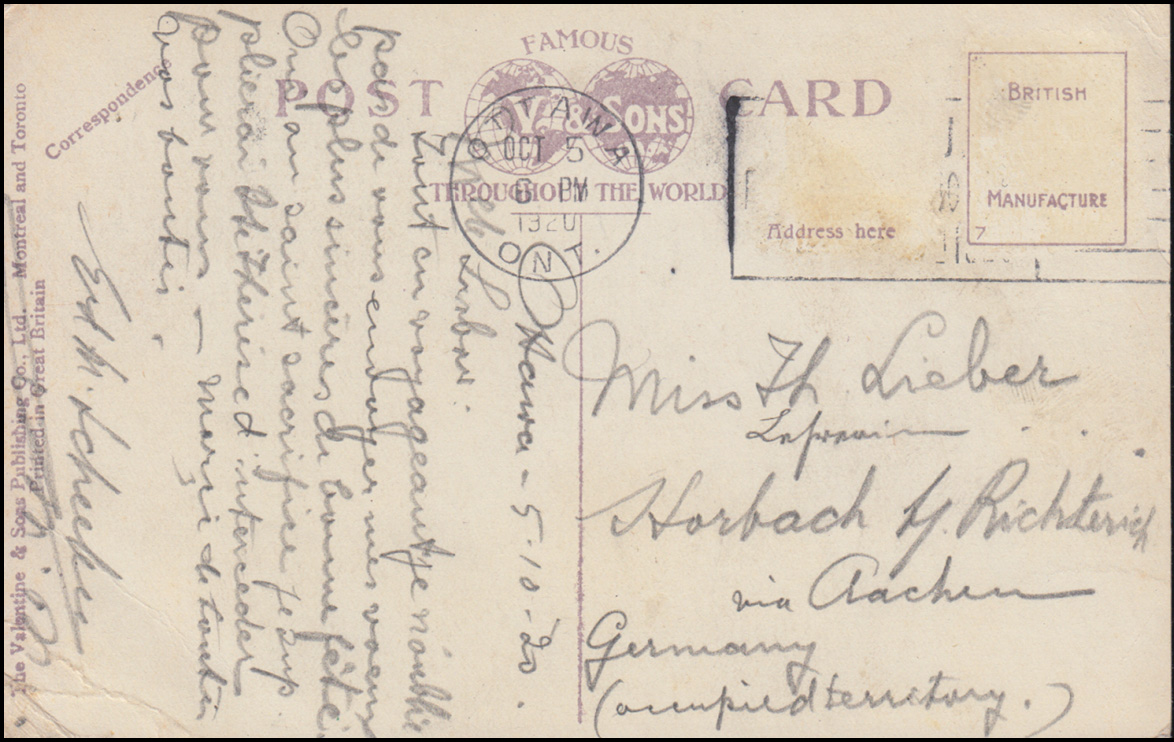 FAMOUS
POST CARD
V. & SONS
THROUGHOUT THE WORLD
BRITISH
MANUFACTURE
7
Address here
Correspondence
The Valentine & Sons Publishing Co., Ltd. Montreal and Toronto
Printed in Great Britain
OTTAWA
OCT 5
6 PM
1920
ONT.
Ottawa - 5-10-20.
Lieber.
Tout en voyageant je n'oublie
pas de vous envoyer mes voeux
les plus sincères de bonne fête.
Que au saint sacrifice je sup
plierai Ste Thérèse d'interceder
pour vous — merci de toutes
vos bontés.
Miss Th Lieber
Horbach b/ Richterich
via Aachen
Germany
(occupied territory.)